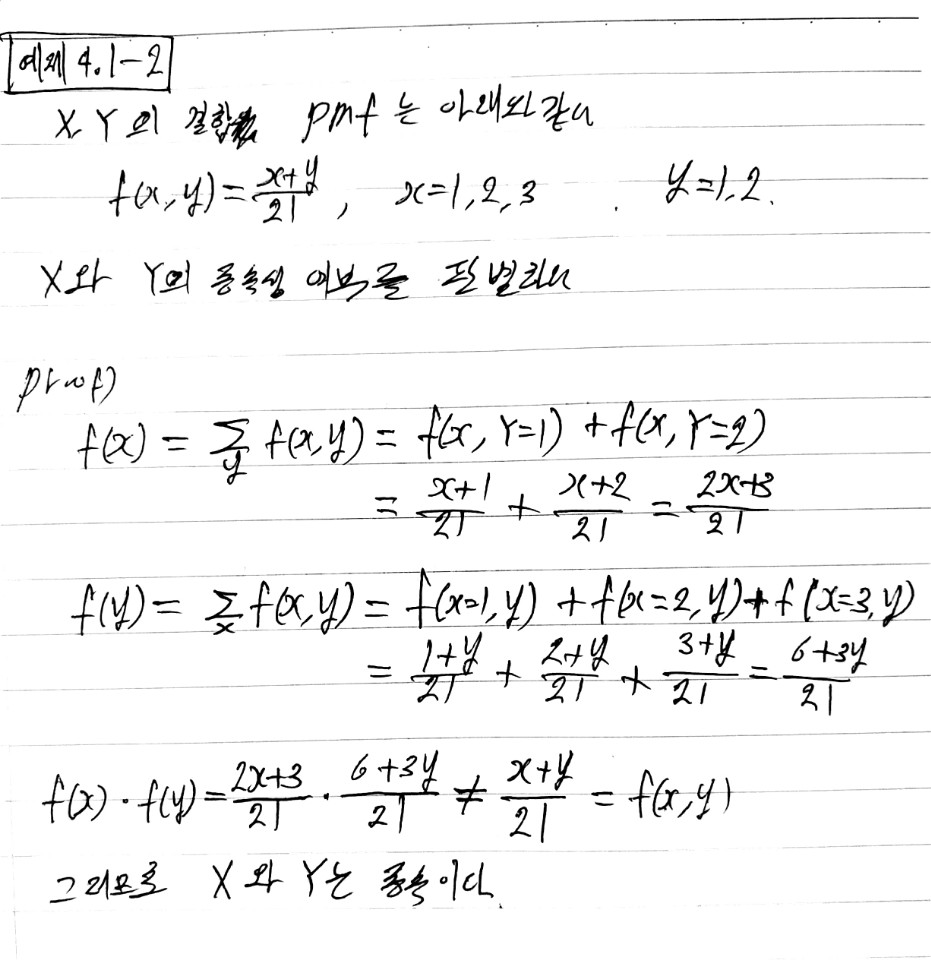 예제 4.1-2
X, Y의 결합 pmf는 아래와 같다
f(x,y) = \frac{x+y}{21}, x=1,2,3 . y=1,2.
X와 Y의 종속성 여부를 판별하라
proof)
f(x) = \sum_y f(x,y) = f(x, Y=1) + f(x, Y=2)
= \frac{x+1}{21} + \frac{x+2}{21} = \frac{2x+3}{21}
f(y) = \sum_x f(x,y) = f(x=1,y) + f(x=2,y) + f(x=3,y)
= \frac{1+y}{21} + \frac{2+y}{21} + \frac{3+y}{21} = \frac{6+3y}{21}
f(x)·f(y) = \frac{2x+3}{21} · \frac{6+3y}{21} ≠ \frac{x+y}{21} = f(x,y)
그러므로 X와 Y는 종속이다.